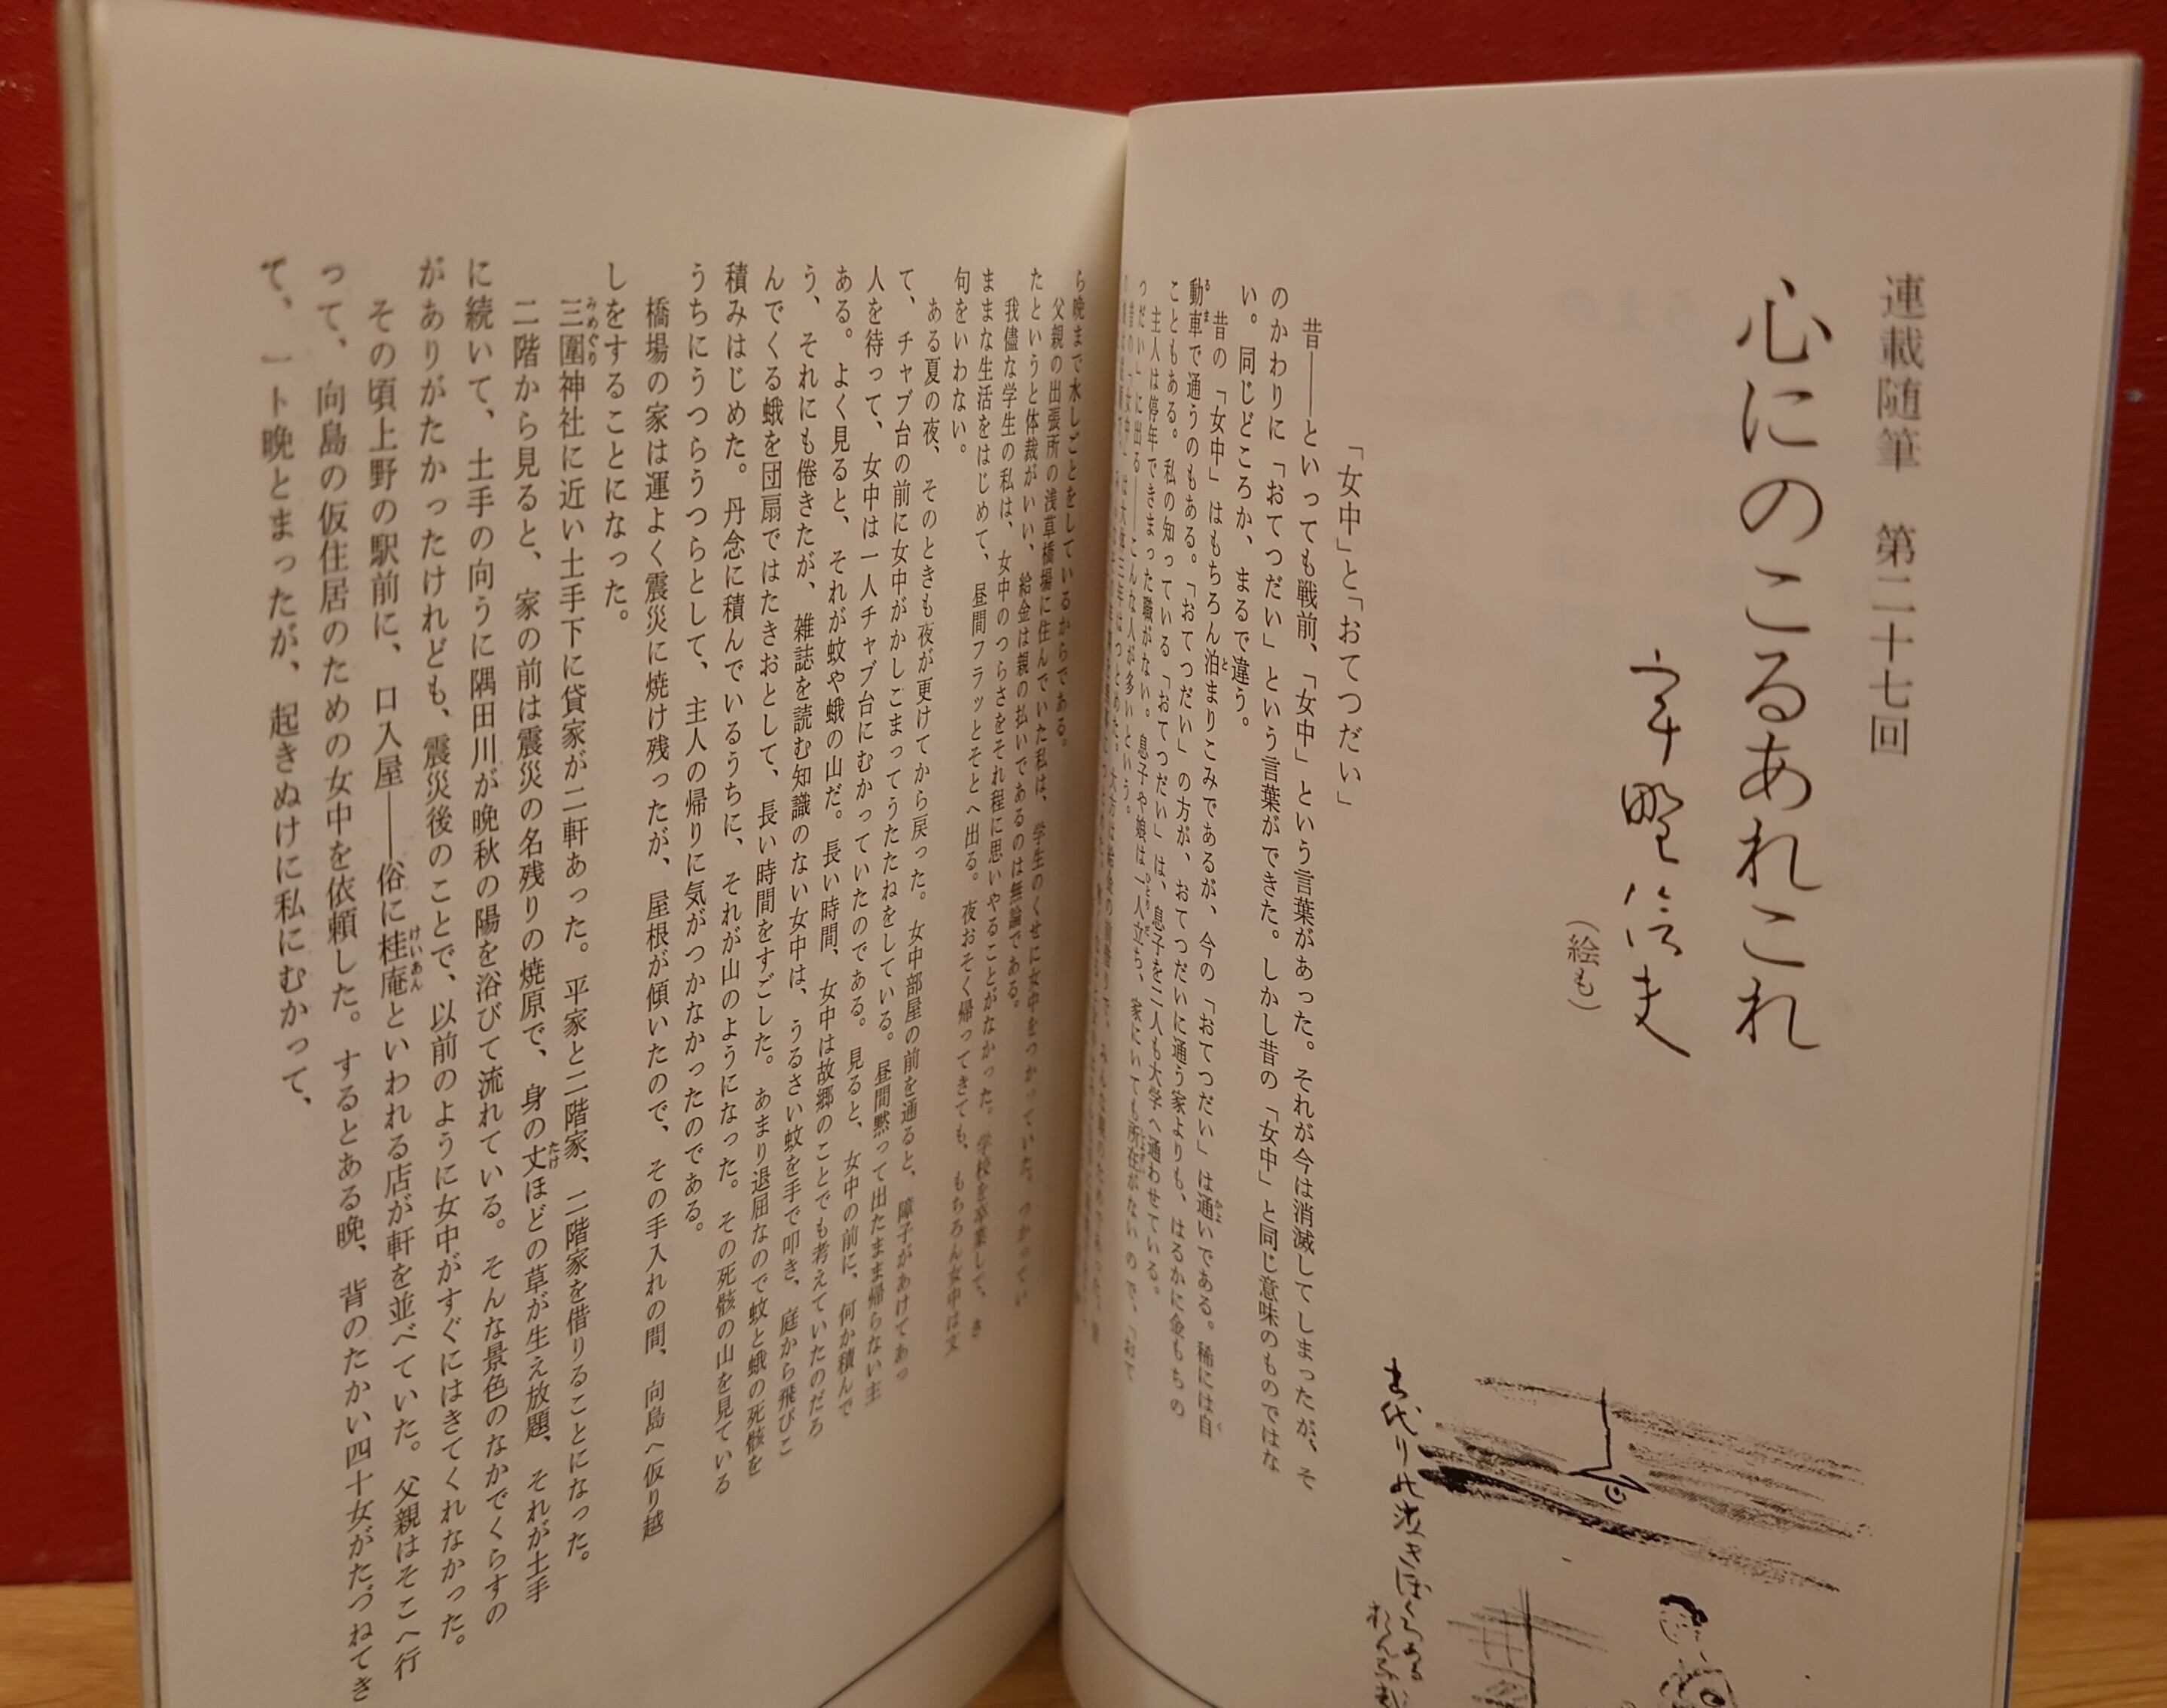 連載随筆　第二十七回
心にのこるあれこれ
宇野信夫
（絵も）
「女中」と「おてつだい」
昔――といっても戦前、「女中」という言葉があった。それが今は消滅してしまったが、そ
のかわりに「おてつだい」という言葉ができた。しかし昔の「女中」と同じ意味のものではな
い。同じどころか、まるで違う。
昔の「女中」はもちろん泊まりこみであるが、今の「おてつだい」は通いである。稀には自
動車で通うのもある。「おてつだい」の方が、おてつだいに通う家よりも、はるかに金もちの
こともある。私の知っている「おてつだい」は、息子を二人も大学へ通わせている。
主人は停年できまった職がない。息子や娘は一人立ち、家にいても所在がないので、「おて
つだい」に出る――こんな人が多いという。
ら晩まで水しごとをしているからである。
父親の出張所の浅草橋場に住んでいた私は、学生のくせに女中をつかっていた。つかってい
たというと体裁がいい、給金は親の払いであるのは無論である。
我儘な学生の私は、女中のつらさをそれ程に思いやることがなかった。学校を卒業して、き
ままな生活をはじめて、昼間フラッとそとへ出る。夜おそく帰ってきても、もちろん女中は文
句をいわない。
ある夏の夜、そのときも夜が更けてから戻った。女中部屋の前を通ると、障子があけてあっ
て、チャブ台の前に女中がかしこまってうたたねをしている。昼間黙って出たまま帰らない主
人を待って、女中は一人チャブ台にむかっていたのである。見ると、女中の前に、何か積んで
ある。よく見ると、それが蚊や蛾の山だ。長い時間、女中は故郷のことでも考えていたのだろ
う、それにも倦きたが、雑誌を読む知識のない女中は、うるさい蚊を手で叩き、庭から飛びこ
んでくる蛾を団扇ではたきおとして、長い時間をすごした。あまり退屈なので蚊と蛾の死骸を
積みはじめた。丹念に積んでいるうちに、それが山のようになった。その死骸の山を見ている
うちにうつらうつらとして、主人の帰りに気がつかなかったのである。
橋場の家は運よく震災に焼け残ったが、屋根が傾いたので、その手入れの間、向島へ仮り越
しをすることになった。
三圍神社に近い土手下に貸家が二軒あった。平家と二階家、二階家を借りることになった。
二階から見ると、家の前は震災の名残りの焼原で、身の丈ほどの草が生え放題、それが土手
に続いて、土手の向うに隅田川が晩秋の陽を浴びて流れている。そんな景色のなかでくらすの
がありがたかったけれども、震災後のことで、以前のように女中がすぐにはきてくれなかった。
その頃上野の駅前に、口入屋――俗に桂庵といわれる店が軒を並べていた。父親はそこへ行
って、向島の仮住居のための女中を依頼した。するとある晩、背のたかい四十女がたづねてき
て、一ト晩とまったが、起きぬけに私にむかって、